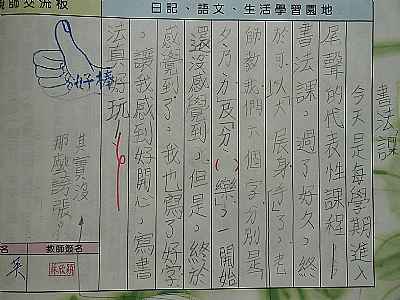 日記、語文、生活學習園地
親師交流板
書法課
今天是每學期進入
尾聲的代表性課程—
書法課,過了好久,終
於可以大展身手了,老
師教我們六個字,分別是
夕、乃、方、及、分、樂,一開始
還沒感覺到,但是,終於
感覺到了,我也寫了好字
,讓我感到好開心,寫書
法真好玩!
好棒
其實沒
那麼誇張。
名
教師簽名